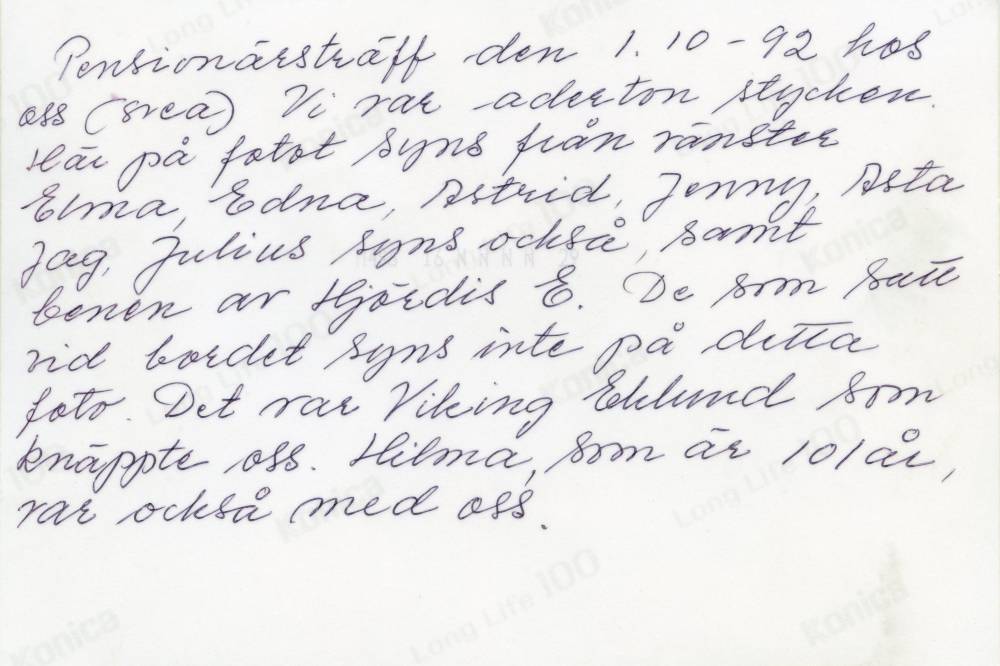 Pensionärsträff den 1. 10 - 92 hos
oss (Svea) Vi var aderton stycken.
Här på fotot syns från vänster
Elma, Edna, Astrid, Jenny, Asta
Jag, Julius syns också, samt
benen av Hjördis E. De som satt
vid bordet syns inte på detta
foto. Det var Viking Eklund som
knäppte oss. Hilma, som är 101 år,
var också med oss.
Konica
Long Life 100